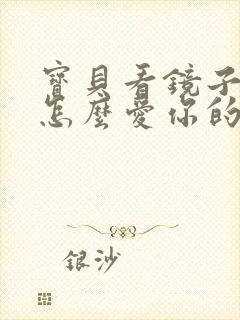 寶貝看鏡子
怎麼愛你的
銀沙